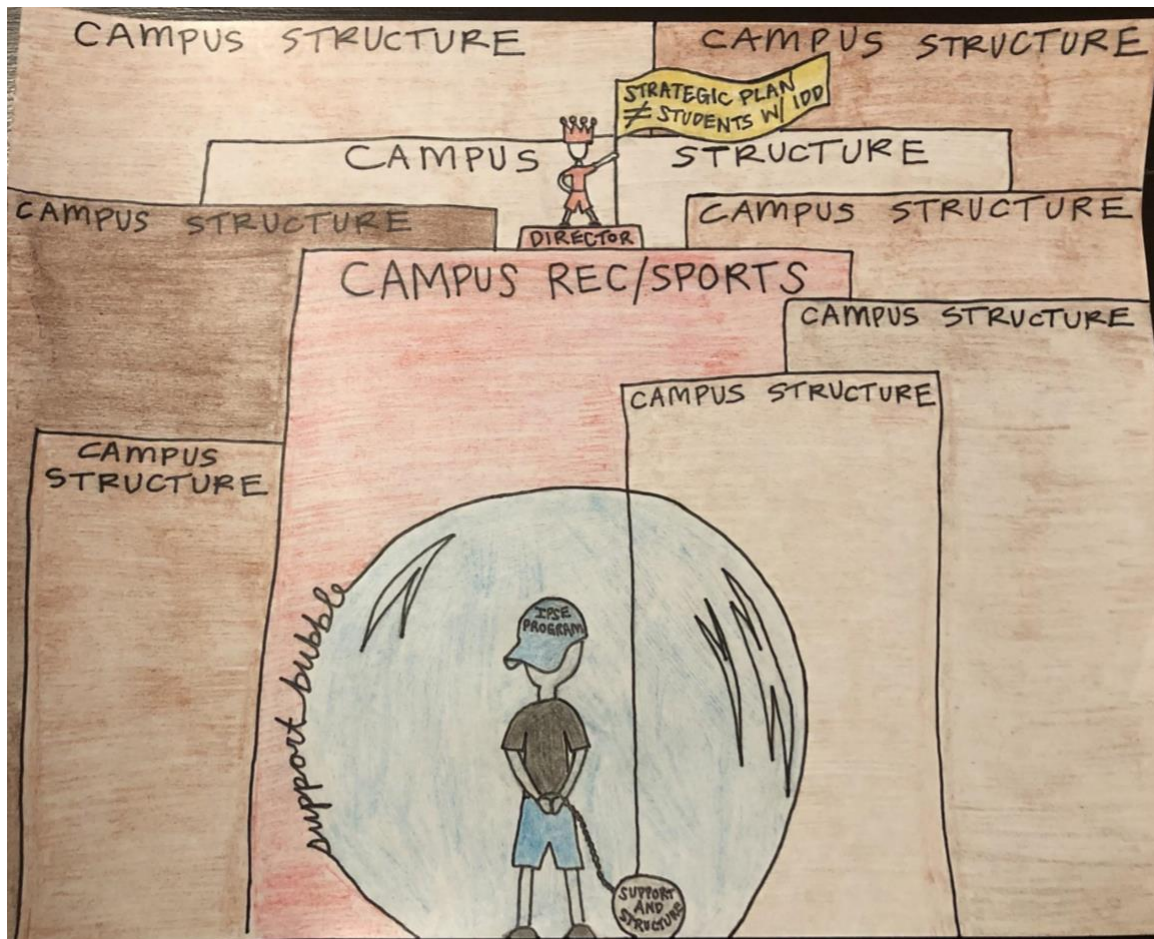 CAMPUS STRUCTURE
CAMPUS STRUCTURE
STRATEGIC PLAN
≠ STUDENTS W/ IDD
CAMPUS STRUCTURE
CAMPUS STRUCTURE
CAMPUS STRUCTURE
DIRECTOR
CAMPUS REC/SPORTS
CAMPUS STRUCTURE
CAMPUS STRUCTURE
CAMPUS
STRUCTURE
support bubble
IPSE
PROGRAM
SUPPORT
AND
STRUCTURE